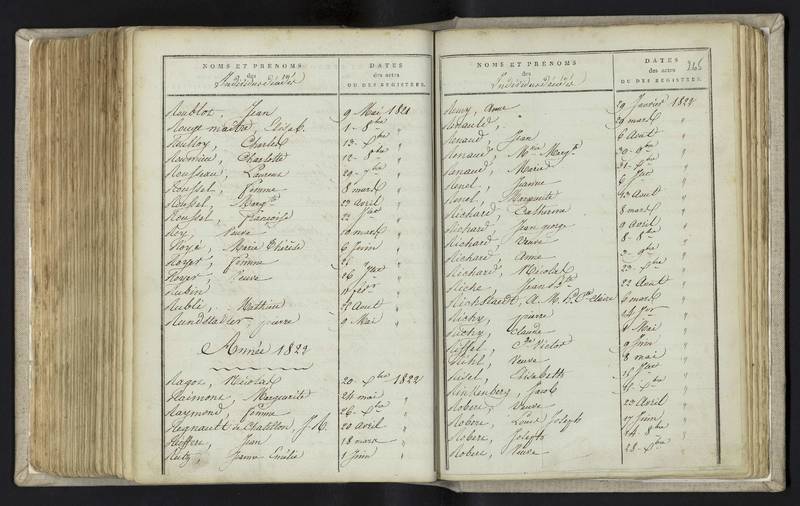 NOMS ET PRENOMS
des
Individus décédés
DATES
des actes
OU DES REGISTRES.
Roublot, Jean 9 Mai 1821
Rougemaitre, Elisab. 1 - 8bre "
Roulloy, Charles 13 - "
Roumieu, Charlotte 12 - 8bre "
Rousseau, Laurent 29 - 7bre "
Roussel, Femme 8 mars "
Roussel, Margte 23 Avril "
Roussel, Françoise 22 Jer "
Roy, Veuve 10 mars "
Royé, Marie Thérèse 6 Juin "
Royer, Femme "
Royer, Veuve 16 "
Rubin "
Rublé, Mathieu Aout "
Rundstadler, pierre 9 Mai "
Année 1822
Ragot, Nicolas 20 - Xbre 1822
Raimond, Marguerite 24 mai "
Raymond, femme 26 - Xbre "
Regnault de Chatillon, J.B. 20 avril "
Reiffer, Jean 18 mars "
Reitz, Jeanne Emélie 1 Juin "
NOMS ET PRENOMS
des
Individus décédés
DATES
des actes
OU DES REGISTRES.
246
Remy, Anne 29 Janvier 1822
Renauld, " 29 mars "
Renaud, Jean 6 Aout "
Renaud, Mie Margte 30 - 9bre "
Renaud, Marie 31 - Xbre "
Renel, Jeanne 6 Jer "
Renel, Marguerite 13 Aout "
Richard, Catherine 8 mars "
Richard, Jean george 9 Avril "
Richard, Veuve 8 - 8bre "
Richard, Anne 2 - 9bre "
Richard, Nicolas 23 - Xbre "
Riche, Jean Bte 22 Aout "
Richstaedt, A. M. Claire 6 mars "
Richy, pierre 24 Jer "
Richy, Claude 4 Mai "
Riffel, Victor 9 Juin "
Rihl, Veuve 8 mai "
Risel, Elisabeth 15 "
Rinkenberg, Jacob 11 - Xbre "
Robert, Veuve 23 Avril "
Robert, Louis Joseph 17 Juin "
Robert, Joseph 24 - 8bre "
Robert, Veuve 28 - Xbre "